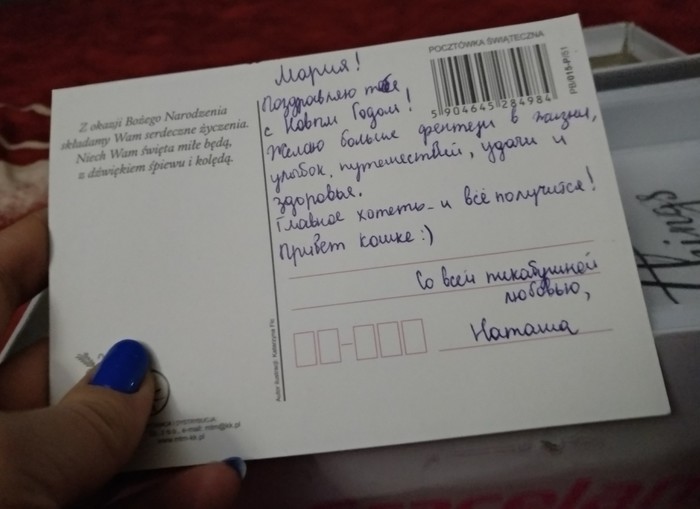 POCZTÓWKA ŚWIĄTECZNA
PB/015-P/51
5 904645 284984
Z okazji Bożego Narodzenia
składamy Wam serdeczne życzenia.
Niech Wam święta miłe będą,
z dźwiękiem śpiewu i kolędą.
Мария!
Поздравляю тебя
с Новым Годом!
Желаю больше фентези в жизни,
улыбок, путешествий, удачи и
здоровья.
Главное хотеть - и всё получится!
Привет кошке :)
Со всей пикабушной
любовью,
Наташа
Autor ilustracji: Katarzyna
www.mtm-kk.pl
things